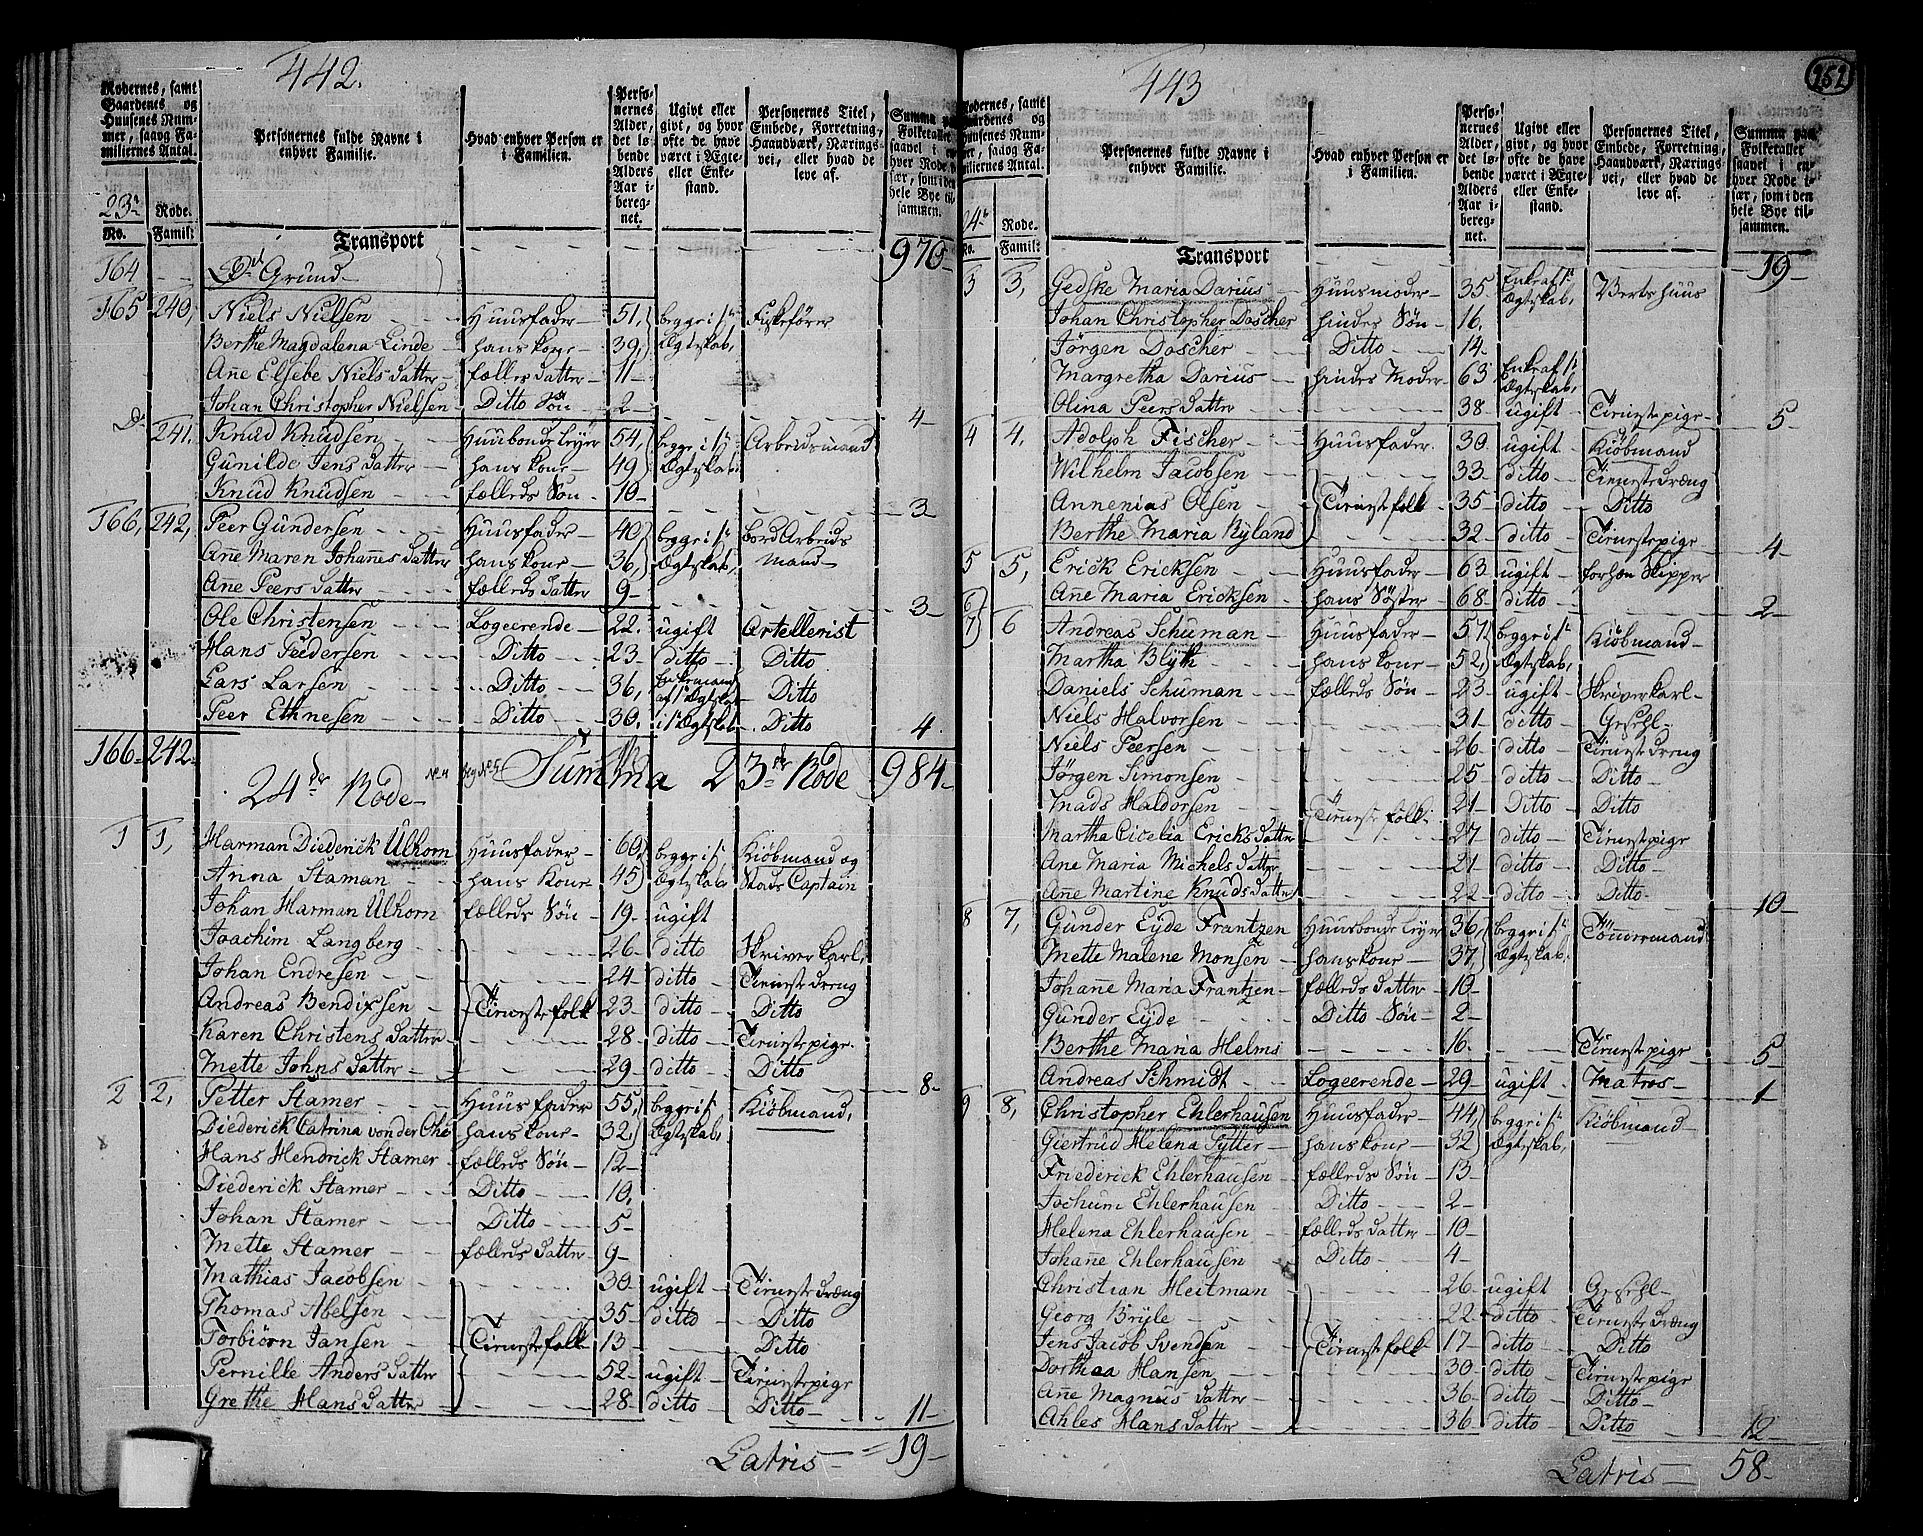 442.
Rodernes, samt Gaardenes og Huusenes Nummer, saavg Familiernes Antal.
Personernes fulde Navne i enhver Familie.
Hvad enhver Person er i Familien.
Personernes Alder, det løbende Alders Aar iberegnet.
Ugivt eller givt, og hvor ofte de have været i Ægte- eller Enkestand.
Personernes Titel, Embede, Forretning, Haandværk, Næringsvei, eller hvad de leve af.
Summa paa Folketallet saavel i enhver Rode især, som i den hele Bye tilsammen.
23de Rode.
No. Famil:
Transport 970
164 Grund
165 240, Niels Nielsen Huusfader 51, begge i 1te Fiskefører
Berthe Magdalena Linde hans kone 39, Ægteskab,
Añe Elsebe Niels Datter fælles Datter 11
Johan Christopher Nielsen Ditto Søn 2 4
Do 241. Knud Knudsen Huusbonde Leyer 54, begge i 1te Arbeidsmand
Gunilde Jens Datter hans kone 49 Ægteskab
Knud Knudsen fælleds Søn 10 3
166, 242, Peer Gundersen Huusfader 40, begge i 1te Bord Arbeids
Añe Maren Johañes Datter hans kone 36, Ægteskab, mand
Añe Peers Datter fælleds Datter 9 3
Ole Christensen Logeerende 22. ugift Artellerist
Hans Pedersen Ditto 23 ditto Ditto
Lars Larsen Ditto 36, Enkemand af 1te Ægteskab Ditto
Peer Ethnesen Ditto 30. i 1te Ægteskab Ditto 4
166 242 Summa 23de Rode 984
24de Rode
1 1, Harman Diederick Ulhorn Huusfader 60, begge i 1te Kiøbmand og
Anna Staman hans kone 45 Ægteskab Stads Captain
Johan Harman Ulhorn fælleds Søn 19 ugift
Joachim Langberg 26 ditto Skriver karl,
Johan Endresen 24 ditto Tieneste dreng
Andreas Bendixsen Tieneste folk 23 ditto Ditto
Karen Christens Datter 28 ditto Tieneste pige
Mette Johns Datter 29 ditto Ditto 8
2 2, Petter Stamer Huusfader 55, begge i 1te Kiøbmand,
Diederick Catrina von der Ohe hans kone 32, Ægteskab,
Hans Hendrick Stamer fælleds Søn 12
Diederick Stamer Ditto 10,
Johan Stamer Ditto 5
Mette Stamer fælleds Datter 9
Mathias Jacobsen 30 ugift Tieneste dræng
Thomas Abelsen 35 ditto Ditto
Torbiørn Jansen Tieneste folk 13 Ditto
Pernille Anders Datter 52 ugift Tieneste pige
Grethe Hans Datter 28 ditto Ditto 11
Latris 19
443
252
Rodernes, samt Gaardenes og Huusenes Nummer, saavg Familiernes Antal.
Personernes fulde Navne i enhver Familie.
Hvad enhver Person er i Familien.
Personernes Alder, det løbende Alders Aar iberegnet.
Ugivt eller givt, og hvor ofte de have været i Ægte- eller Enkestand.
Personernes Titel, Embede, Forretning, Haandværk, Næringsvei, eller hvad de leve af.
Summa paa Folketallet saavel i enhver Rode især, som i den hele Bye tilsammen.
24de Rode.
No. Famil:
Transport 19
3 3, Gedske Maria Darius Huusmoder 35 Enke af 1te Ægteskab, Vertshuus
Johan Christopher Doscher hindes Søn 16.
Jørgen Doscher Ditto 14
Margretha Darius hindes Moder 63 Enke af 1te Ægteskab,
Olina Peers Datter 38 ugift Tieneste pige 5
4 4. Adolph Fischer Huusfader 30 ugift Kiøbmand
Wilhelm Jacobsen 33 ditto Tieneste dræng
Annenias Olsen Tieneste folk 35 ditto Ditto
Berthe Maria Ryland 32 ditto Tieneste pige 4
5 5, Erick Ericksen Huusfader 63 ugift forhen Skipper
Ane Maria Ericksen hans Søster 68 ditto 2
6 7 6 Andreas Schuman Huusfader 57 begge i 1te Kiøbmand
Martha Blÿth hans kone 52, Ægteskab,
Daniels Schuman fælleds Søn 23 ugift Skriverkarl
Niels Halvorsen 31 ditto Gesehl
Niels Peersen 26 ditto Tieneste dreng
Jørgen Simonsen 25 ditto Ditto
Mads Haldorsen Tieneste folk 21 Ditto Ditto
Martha Cicelia Ericks Datter 27 ditto Tieneste pige
Ane Maria Michels Datter 21 ditto Ditto
Añe Martine Knuds Datter 22 ditto Ditto 10
8 7, Gunder Eyde Frantzen Huusbonde Leyer 36, begge i 1te Tömmermand
Mette Malene Monsen hans kone 37, Ægteskab,
Johañe Maria Frantzen fælleds Datter 10
Gunder Eyde Ditto Søn 2
Berthe Maria Helms 16 Tieneste pige 5
Andreas Schmidt Logeerende 29 ugift Matros 1
9 8, Christopher Ehlerhausen Huusfader 44, begge i 1te Kiøbmand
Giertrud Helena Sÿtter hans kone 32 Ægteskab,
Friederick Ehlerhausen fælleds Søn 13
Jochum Ehlerhausen Ditto 2
Helena Ehlerhausen fælleds Datter 10
Johañe Ehlerhausen Ditto 4
Christian Heitman 26 ugift Gesehl
Georg Brÿle 22 ditto Tieneste dræng
Jens Jacob Svendsen Tieneste folk 17 ditto Ditto
Dorthea Hansen 30 ditto Tieneste pige
Añe Magnus Datter 36 ditto Ditto
Ahles Hans Datter 36 ditto Ditto 12
Latris 58